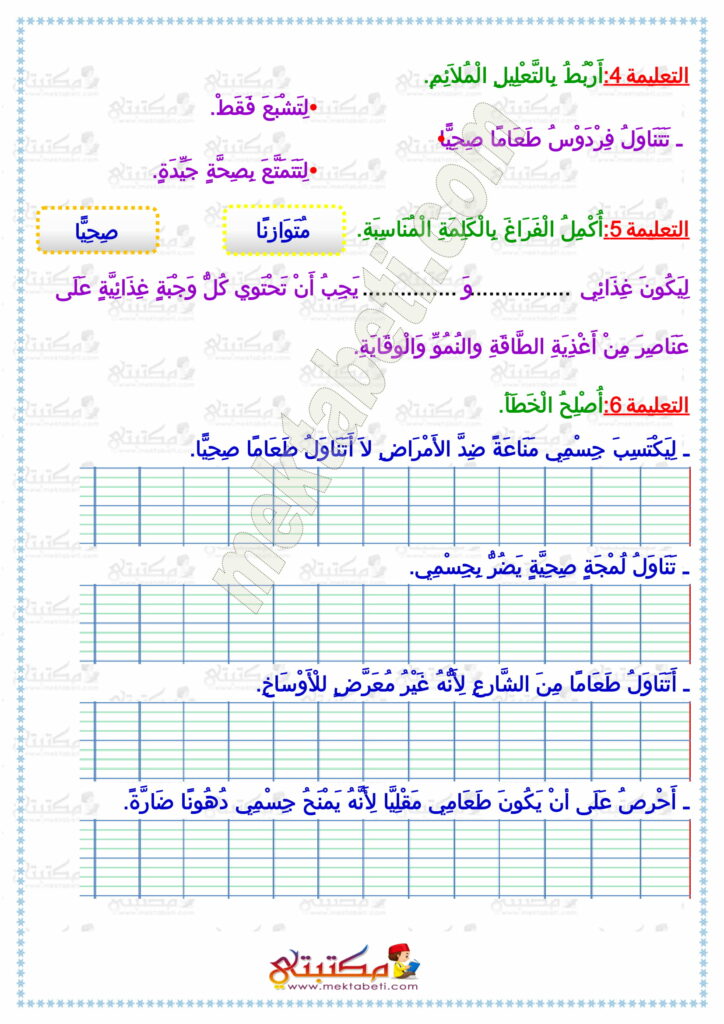 التعليمة 4:أَرْبُطُ بِالتَّعْلِيلِ الْمُلاَئِمِ.
•لِتَشْبَعَ فَقَطْ.
ـ تَتَنَاوَلُ فِرْدَوْسُ طَعَامًا صِحِيًّا•
•لِتَتَمَتَّعَ بِصِحَّةٍ جَيِّدَةٍ.
التعليمة 5:أُكْمِلُ الْفَرَاغَ بِالْكَلِمَةِ الْمُنَاسِبَةِ. مُتَوَازِنًا صِحِيًّا
لِيَكُونَ غِذَائِي ................وَ............... يَجِبُ أَنْ تَحْتَوِي كُلُّ وَجْبَةٍ غِذَائِيَّةٍ عَلَى
عَنَاصِرَ مِنْ أَغْذِيَةِ الطَّاقَةِ والنُمُوِّ وَالْوِقَايَةِ.
التعليمة 6:أُصْلِحُ الْخَطَأَ.
ـ لِيَكْتَسِبَ جِسْمِي مَنَاعَةً ضِدَّ الأَمْرَاضِ لاَ أَتَنَاوَلُ طَعَامًا صِحِيًّا.
ـ تَنَاوَلُ لُمْجَةٍ صِحِيَّةٍ يَضُرُّ بِجِسْمِي.
ـ أَتَنَاوَلُ طَعَامًا مِنَ الشَّارِعِ لِأَنَّهُ غَيْرُ مُعَرَّضٍ للْأَوْسَاخِ.
ـ أَحْرِصُ عَلَى أنْ يَكُونَ طَعَامِي مَقْلِيًّا لِأَنَّهُ يَمْنَحُ جِسْمِي دُهُونًا ضَارَّةً.
مكتبتي
www.mektabeti.com
mektabeti.com